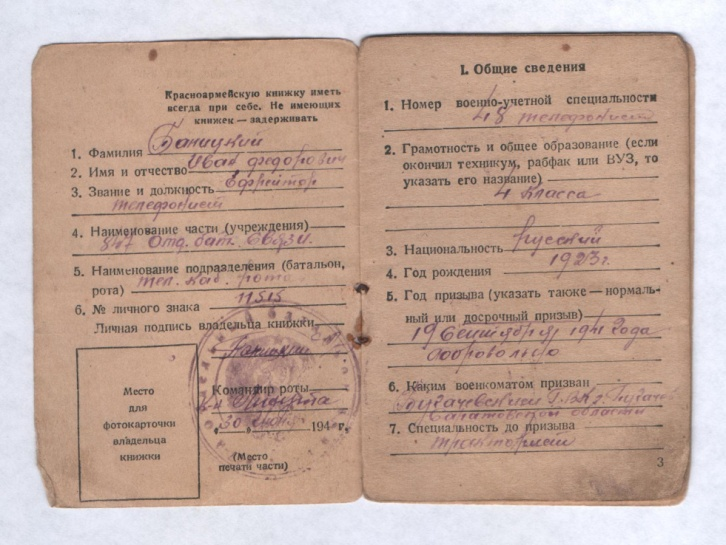 Красноармейскую книжку иметь
всегда при себе. Не имеющих
книжек — задерживать
1. Фамилия Баницкий
2. Имя и отчество Иван Федорович
3. Звание и должность Ефрейтор
телефонист
4. Наименование части (учреждения)
847 Отд. бат. Связи.
5. Наименование подразделения (батальон,
рота) тел. каб. рота
6. № личного знака 11515
Личная подпись владельца книжки
Место
для
фотокарточки
владельца
книжки
Командир роты
30 194 г.
(Место
печати части)
I. Общие сведения
1. Номер военно-учетной специальности
48 телефонист
2. Грамотность и общее образование (если
окончил техникум, рабфак или ВУЗ, то
указать его название)
4 класса
3. Национальность Русский
4. Год рождения 1923г.
5. Год призыва (указать также — нормаль-
ный или досрочный призыв)
19 Сентября 1941 года
добровольно
6. Каким военкоматом призван
Пугачевский Г.В.К. г. Пугачев
Саратовской области
7. Специальность до призыва
тракторист
3